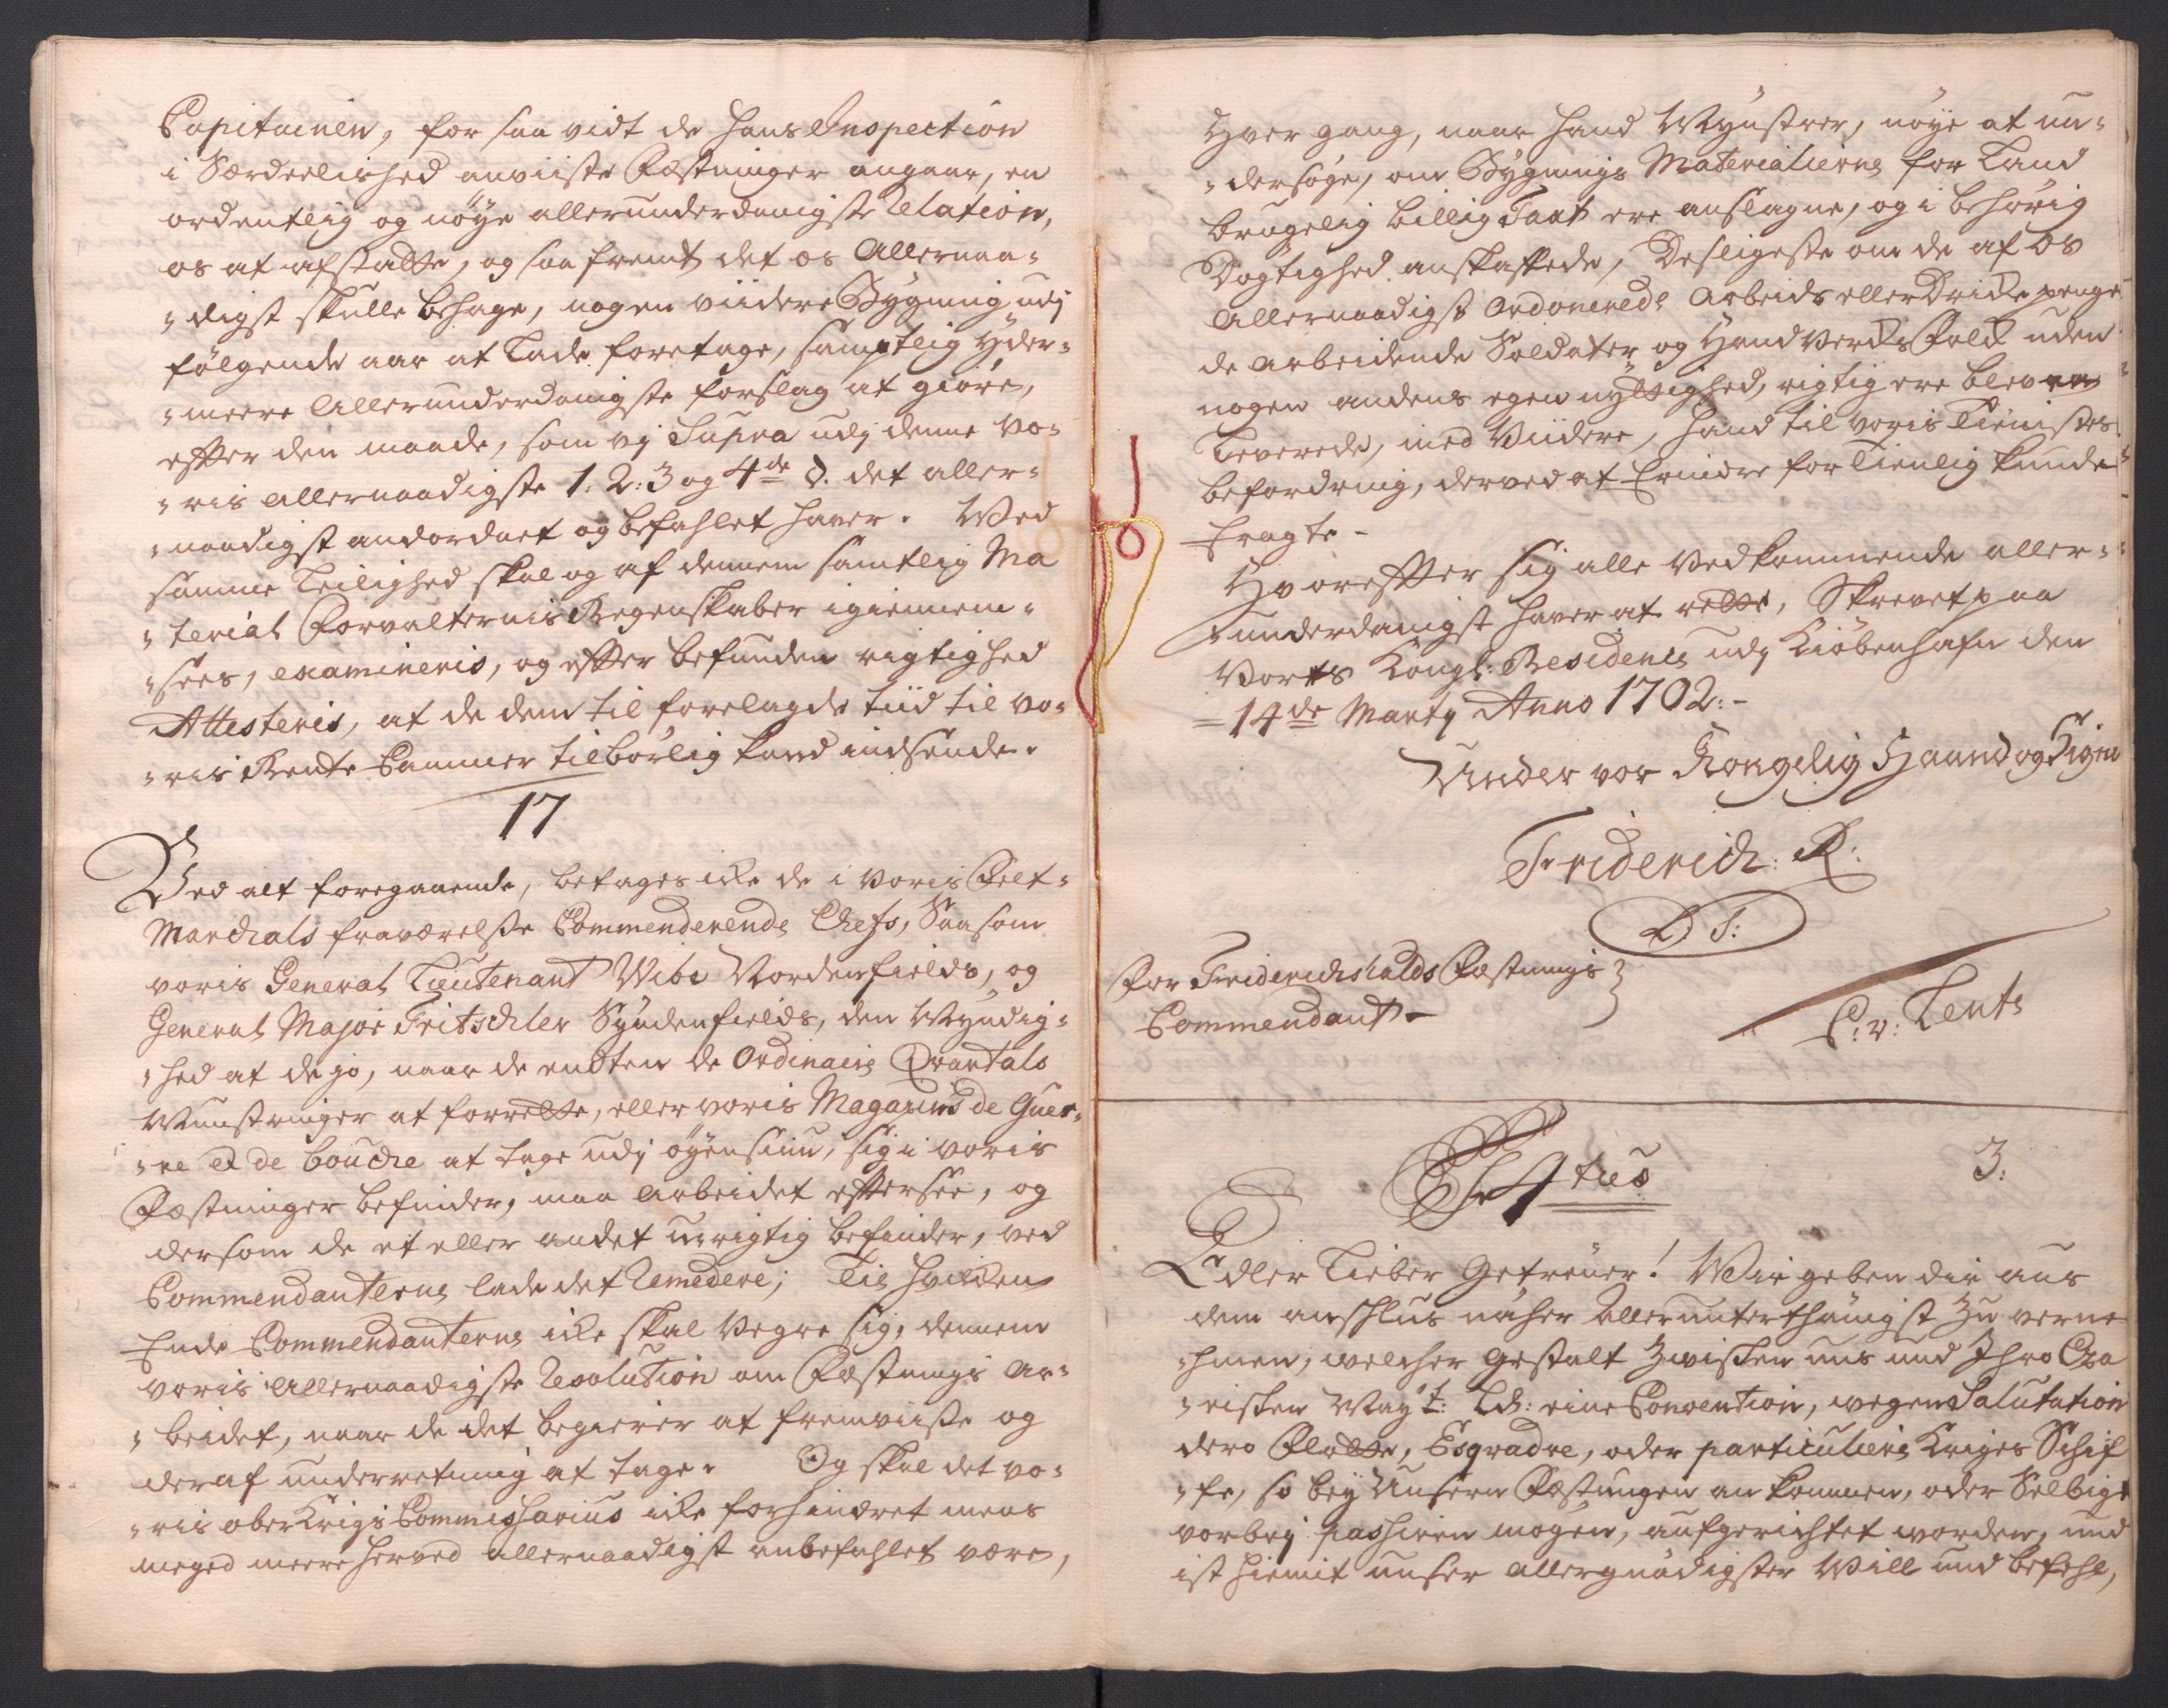 Capitainen, for saa vidt de hans Inspection
i Særdeelished anviiste Fæstninger angaar, en
ordentlig og nøye allerunderdanigste Relation,
os at afstatte, og saa fremt det os Allernaa-
"digst skulle behage, nogen viidere Bygning udj
følgende aar at lade foretage, samptlig yder-
"meere Allerunderdanigste forslag at giöre,
effter den maade, som vj Supra udj denne vo-
"ris allernaadigste 1. 2: 3 og 4de §. det aller-
"naadigst anordnet og befahlet haver. Ved
samme Leilighed skal og af dennem samtlig Ma
"terial Forvalternis Regenskaber igiennem-
"sees, examineris, og effter befunden rigtighed
Attesteris, at de dem til forelagde tiid til vo-
"ris Rente Cammer tilbörlig kand indsende.
17
Ved alt foregaaende, betages icke de i voris Felt-
Marchals fraværelsse Commenderende Chefs, Saasom
voris General Lieutenant Wibe Nordenfields, og
General Major Tritschler Syndenfields, den Myndig-
"hed at de jo, naar de endten de Ordinairs Qvartals
Munstringer at forrette, eller voris Magazins de Guer-
"re et de bouche at tage udj øyensiun, sig i voris
Fæstninger befinder, maa Arbeidet effersee, og
dersom de et eller andet urigtig befinder, ved
Commendanterne lade det Remedere; Til hvilcken
Ende Commendanterne icke skal vegre sig, dennem
voris Allernaadigste Resolution om Fæstnings Ar-
"beidet, naar de det begierer at fremviisse og
deraf underretning at tage. Og skal det vo-
"ris ober Krigs Commissarius icke forhindret mens
meged meere herved allernaadigst anbefahlet være,
Hver gang, naar hand Mynstrer, nöye at un-
"dersøge, om Bygnings Materialierne for Land
brugelig billig Taxt ere anslagne, og i behörig
Dögtighed anskaffede, Desligeste om de af os
Allernaadigst Ordonerede Arbeids eller Dricke penge
de arbeidende Soldater og Handverks Folck uden
nogen andens egen nyttighed, rigtig ere blevne
Leverede, med Viidere, hand til voris Tienistes
befordring, derved at Erindre for tienlig kunde
Eragte -
Hvoreffter sig alle vedkommende aller-
"underdanigst haver at rette, Skrevet paa
Vorts Kongl: Residents udj Kiöbenhafn den
14de Marty Anno 1702.-
Under vor Kongelig Haand og Signe
Friderich: R:
L. S:
For Friderichshalds Fæstnings
Commendant -
C: v: Lente
3:
Edler Lieber Getreüer! Wir geben dir aus
dem anschlus näher Allerunterthänigst Zu verne
"hmen, welcher gestalt Zwischen uns und Ihro Cza
"rischen May:t: Ld: eine Convention, wegen Salutation
dero Flotte, Esqvadre, oder particuliers Kriges Schif
"fe, so bey Unsern Fæstungen an kommen, oder Selbige
vorbey passiren mögen, aufgerichtet worden, und
ist hiemit unser allergnädigster Will und befehl,